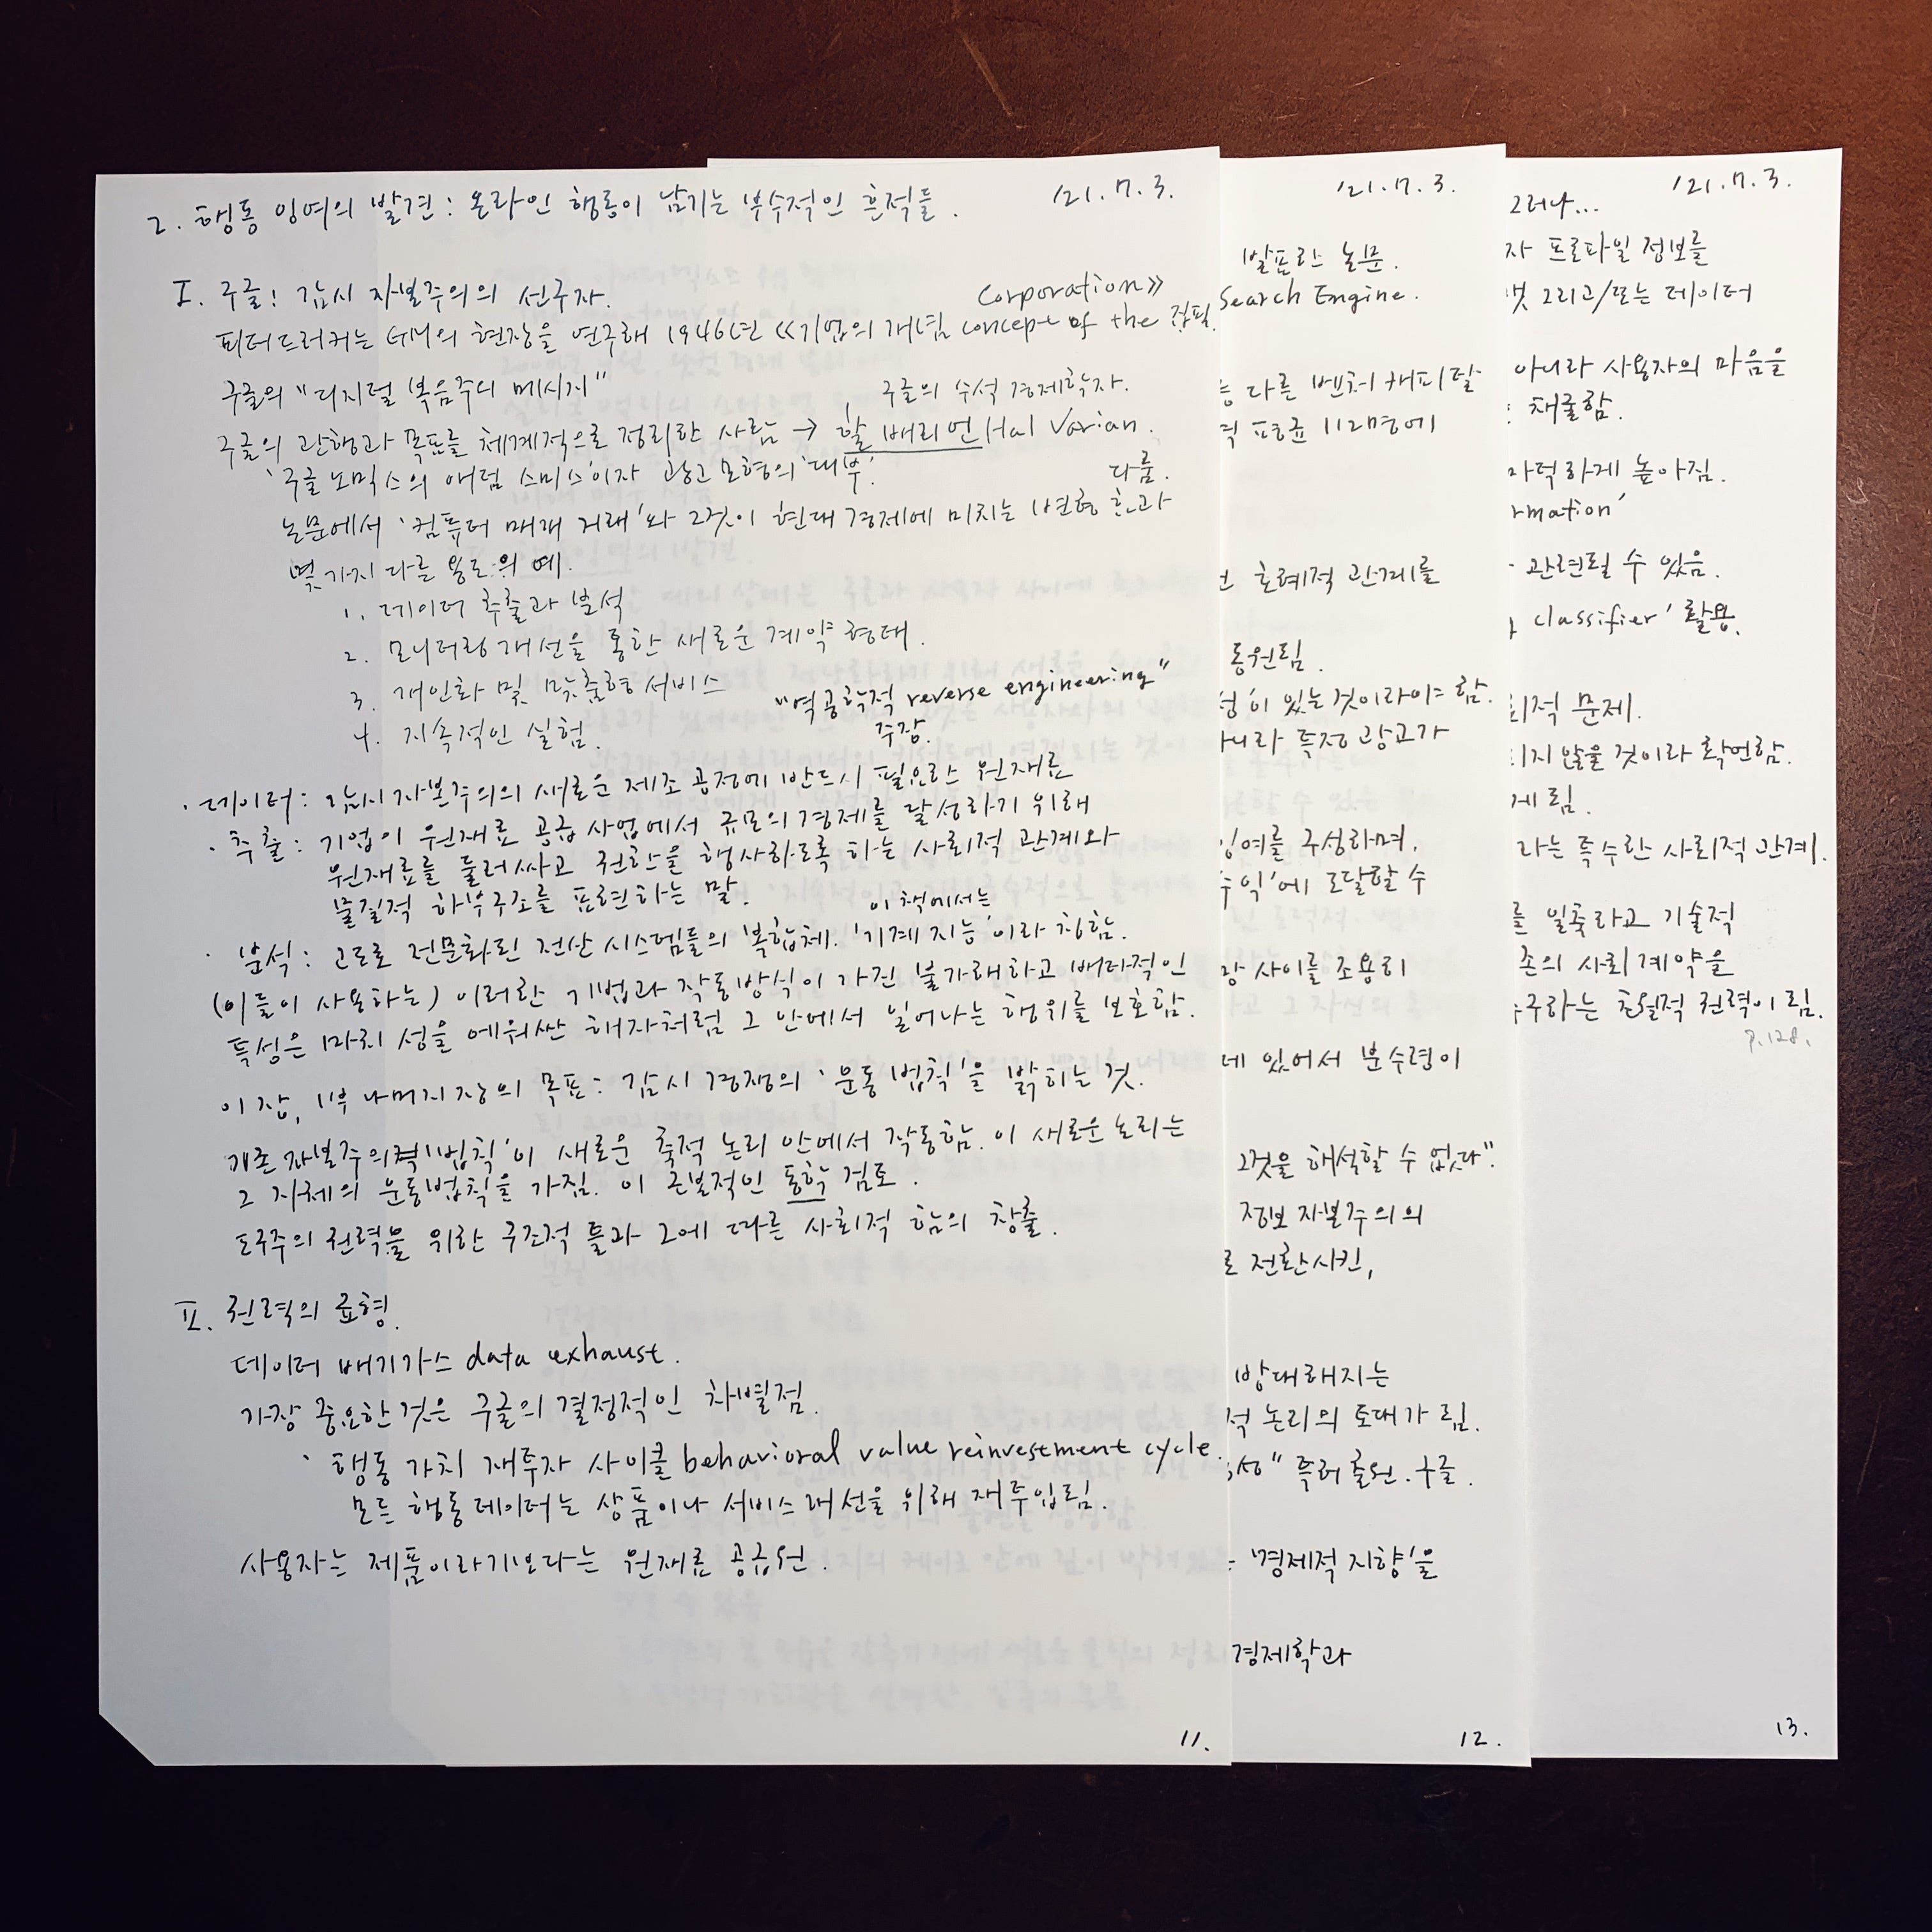 2. 행동 잉여의 발견 : 온라인 행동이 남기는 부수적인 흔적들.
'21. 7. 3.
I. 구글: 감시 자본주의의 선구자.
피터드러커는 GM의 현장을 연구해 1946년 《기업의 개념 concept of the Corporation》 집필.
구글의 "디지털 복음주의 메시지"
구글의 수석 경제학자.
구글의 관행과 목표를 체계적으로 정리한 사람 → 할 배리언 Hal Varian.
'구글노믹스의 애덤 스미스'이자 광고모형의 '대부'.
논문에서 '컴퓨터 매개 거래'와 그것이 현대 경제에 미치는 변형 효과 다룸.
몇 가지 다른 용도의 예.
1. 데이터 추출과 분석
2. 모니터링 개선을 통한 새로운 계약 형태.
3. 개인화 및 맞춤형 서비스
4. 지속적인 실험.
"역공학적 reverse engineering"
주장.
· 데이터 : 감시 자본주의의 새로운 제조 공정에 반드시 필요한 원재료
· 추출 : 기업이 원재료 공급 사업에서 규모의 경제를 달성하기 위해
원재료를 둘러싸고 권한을 행사하도록 하는 사회적 관계와
물질적 하부구조를 표현하는 말.
이 책에서는
· 분석 : 고도로 전문화된 전산 시스템들의 복합체. '기계 지능'이라 칭함.
(이들이 사용하는) 이러한 기법과 작동방식이 가진 불가해하고 배타적인
특성은 마치 성을 에워싼 해자처럼 그 안에서 일어나는 행위를 보호함.
이 장, 1부 나머지 장의 목표 : 감시 경쟁의 '운동 법칙'을 밝히는 것.
기존 자본주의 '법칙'이 새로운 축적 논리 안에서 작동함. 이 새로운 논리는
그 자체의 운동법칙을 가짐. 이 근본적인 동학 검토.
도구주의 권력을 위한 구조적 틀과 그에 따른 사회적 함의 창출.
II. 권력의 균형.
데이터 배기가스 data exhaust.
가장 중요한 것은 구글의 결정적인 차별점.
· 행동 가치 재투자 사이클 behavioral value reinvestment cycle.
모든 행동 데이터는 상품이나 서비스 개선을 위해 재투입됨.
사용자는 제품이라기보다는 원재료 공급원.
11.
'21. 7. 3.
발표한 논문.
Search Engine.
다른 벤처 캐피탈
평균 112명에
호혜적 관계를
동원됨.
있는 것이라야 함.
아니라 특정 광고가
잉여를 구성하며,
수익'에 도달할 수
사이를 조용히
있어서 분수령이
그것을 해석할 수 없다".
정보 자본주의의
로 전환시킨,
방대해지는
논리의 토대가 됨.
특허 출원. 구글.
'경제적 지향'을
경제학과
12.
'21. 7. 3.
그러나...
자 프로파일 정보를
그리고/또는 데이터
아니라 사용자의 마음을
채굴함.
높아짐.
rmation'
관련될 수 있음.
classifier' 활용.
문제.
되지 않을 것이라 확언함.
게 됨.
라는 특수한 사회적 관계.
를 일축하고 기술적
존의 사회 계약을
구하는 초월적 권력이 됨.
p.128.
13.